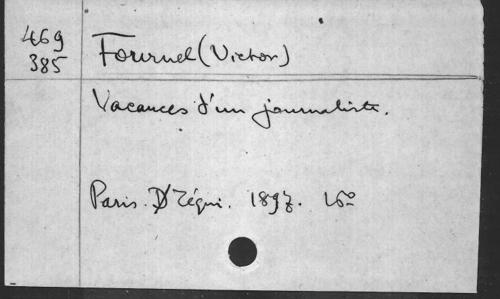 469
385
Fournel (Victor)
Vacances d'un journaliste.
Paris. Téqui. 1897. 16º